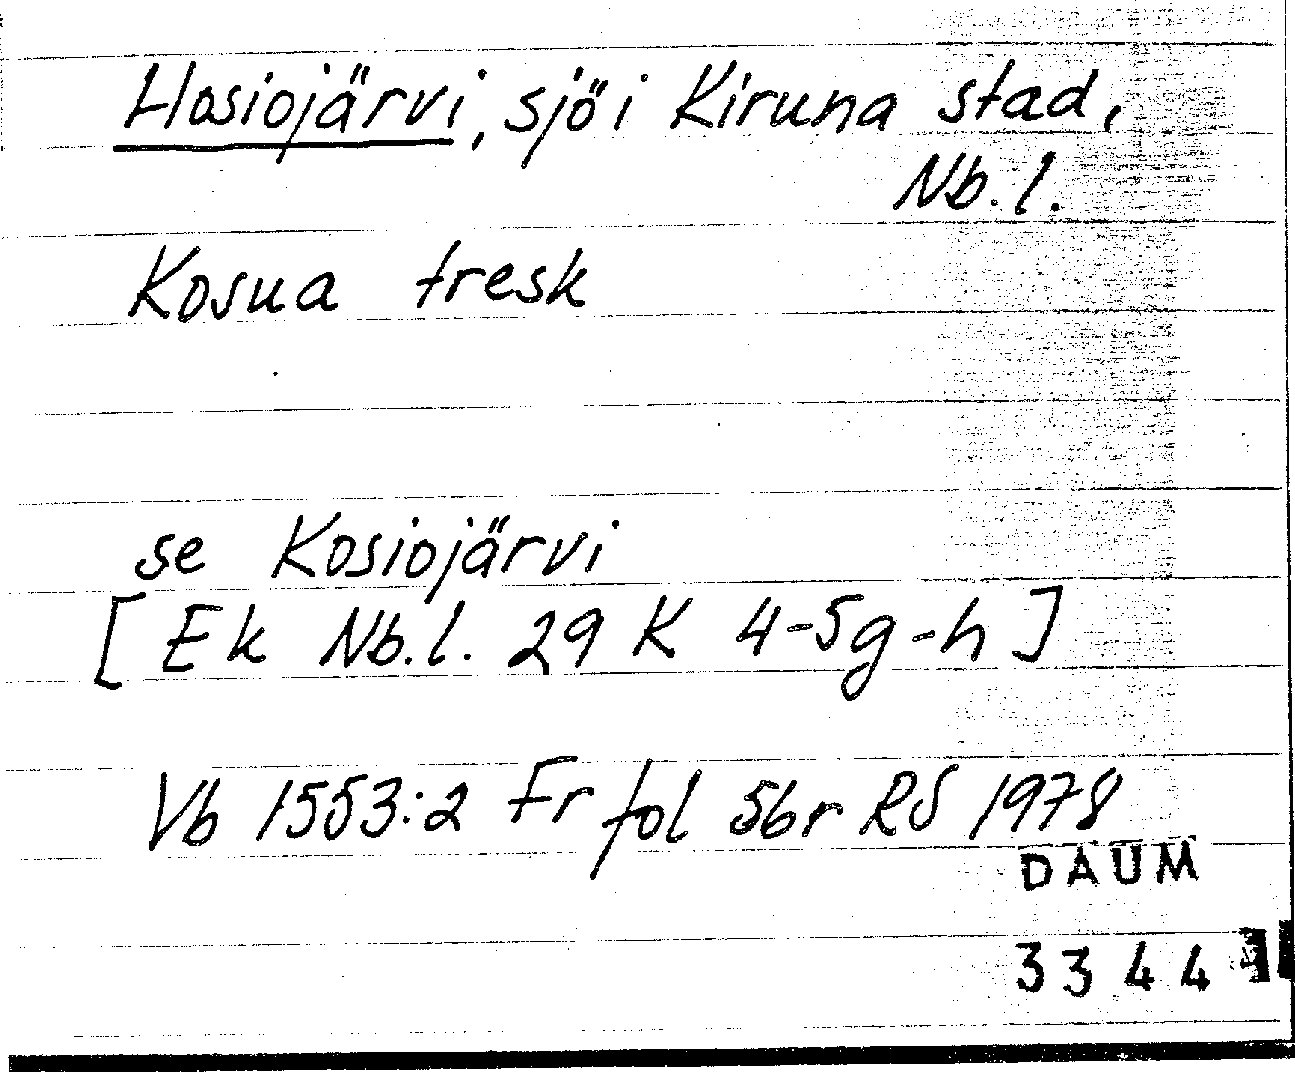 Hosiojärvi, sjö i Kiruna stad,
Nb.l.
Kosua tresk
se Kosiojärvi
[Ek Nb.l. 29 K 4-5g-h]
Vb 1553:2 Fr fol 56r RS 1978
DAUM
3344